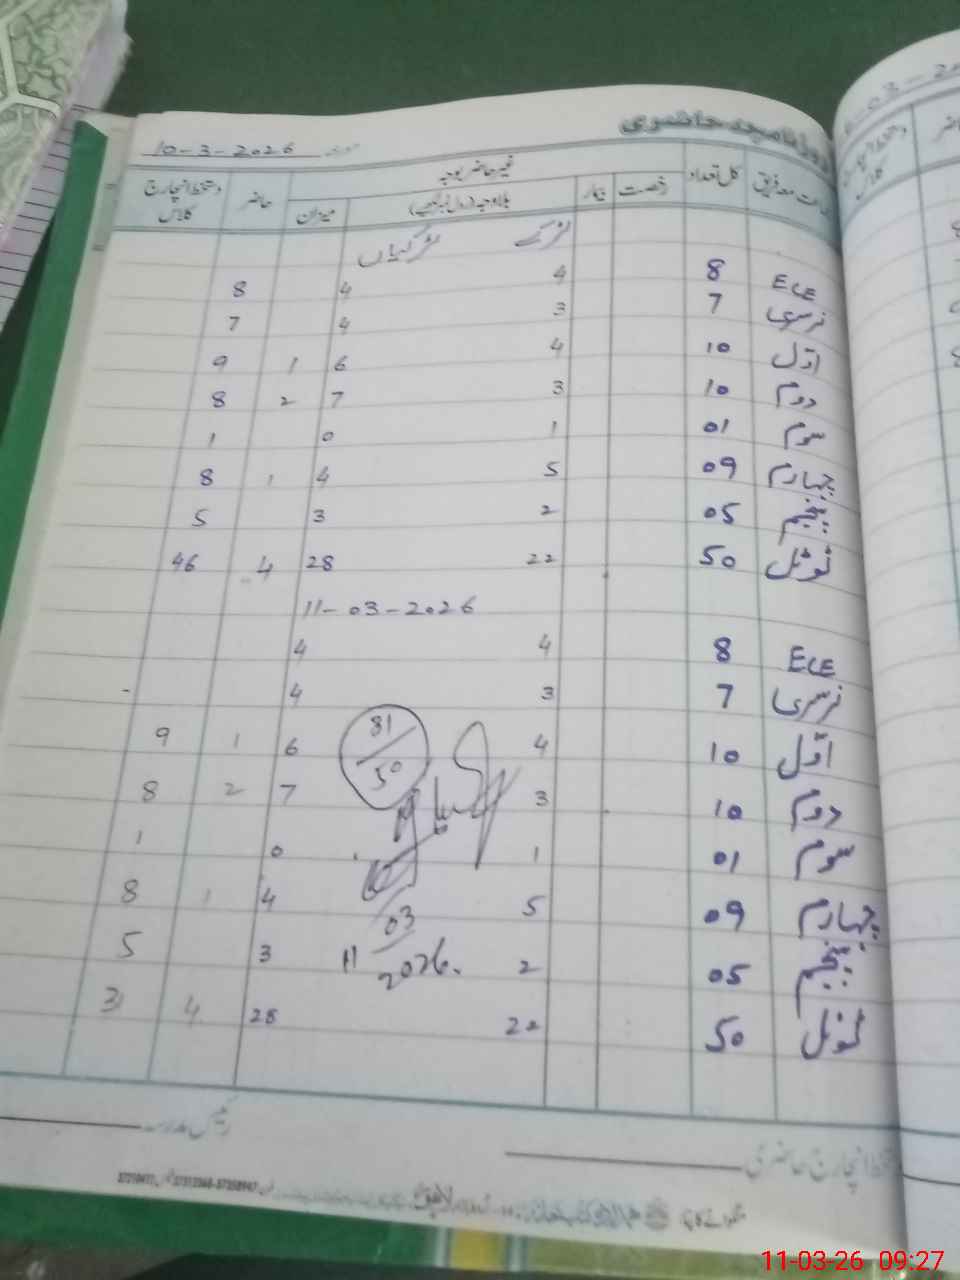 روزنامچہ حاضری
10-3-2026
کل تعداد رخصت بیمار غیر حاضر بوجہ حاضر دستخط انچارج کلاس
میزان
لڑکے لڑکیاں
ECE 8 4 4 8
نرسری 7 3 4 7
اوّل 10 4 6 1 9
دوم 10 3 7 2 8
سوم 01 1 0 1
چہارم 09 5 4 1 8
پنجم 05 2 3 5
ٹوٹل 50 22 28 4 46
11-03-2026
ECE 8 4 4
نرسری 7 3 4
اوّل 10 4 6 1 9
81
50
دوم 10 3 7 2 8
سوم 01 1 0 1
چہارم 09 5 4 1 8
03
پنجم 05 2 3 5
11 2026
ٹوٹل 50 22 28 4 31
رئیس مدرسہ
دستخط انچارج حاضری
11-03-26 09:27